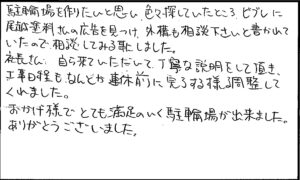 駐輪場を作りたいと思い、色々探していたところ、ビブレに
尾畝塗料さんの広告を見つけ、外構も相談下さいと書かれて
いたので相談してみる事にしました。
社長さん、自ら来ていただいて、丁寧な説明をして頂き、
工事日程もなんとか連休前に完了する様調整して
くれました。
おかげ様でとても満足のいく駐輪場が出来ました。
ありがとうございました。